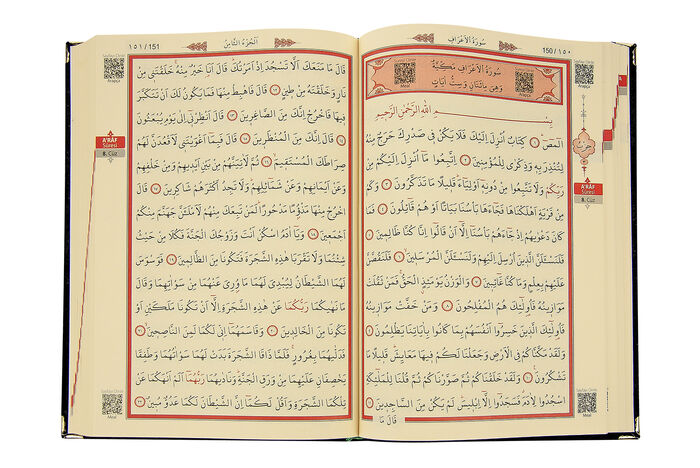 150 / ١٥٠
سُورَةُ الْأَعْرَافِ
سُورَةُ الْأَعْرَافِ مَكِّيَّةٌ
وَهِيَ مِائَتَانِ وَسِتُّ آيَاتٍ
Meal
Arapça
بِسْمِ اللّٰهِ الرَّحْمٰنِ الرَّحِيمِ
الٓمٓصٓ ١ كِتَابٌ اُنْزِلَ اِلَيْكَ فَلَا يَكُنْ فِي صَدْرِكَ حَرَجٌ مِنْهُ
لِتُنْذِرَ بِهِ وَذِكْرٰى لِلْمُؤْمِنِينَ ٢ اِتَّبِعُوا مَٓا اُنْزِلَ اِلَيْكُمْ مِنْ
رَبِّكُمْ وَلَا تَتَّبِعُوا مِنْ دُونِهِ اَوْلِيَٓاءَ قَلِيلًا مَا تَذَكَّرُونَ ٣ وَكَمْ
مِنْ قَرْيَةٍ اَهْلَكْنَاهَا فَجَٓاءَهَا بَأْسُنَا بَيَاتًا اَوْ هُمْ قَٓائِلُونَ ٤ فَمَا
كَانَ دَعْوٰيهُمْ اِذْ جَٓاءَهُمْ بَأْسُنَٓا اِلَّٓا اَنْ قَالُٓوا اِنَّا كُنَّا ظَالِمِينَ ٥
فَلَنَسْـَٔلَنَّ الَّذِينَ اُرْسِلَ اِلَيْهِمْ وَلَنَسْـَٔلَنَّ الْمُرْسَلِينَ ٦ فَلَنَقُصَّنَّ
عَلَيْهِمْ بِعِلْمٍ وَمَا كُنَّا غَٓائِبِينَ ٧ وَالْوَزْنُ يَوْمَئِذٍ الْحَقُّ فَمَنْ ثَقُلَتْ
مَوَازِينُهُ فَاُولٰٓئِكَ هُمُ الْمُفْلِحُونَ ٨ وَمَنْ خَفَّتْ مَوَازِينُهُ
فَاُولٰٓئِكَ الَّذِينَ خَسِرُٓوا اَنْفُسَهُمْ بِمَا كَانُوا بِاٰيَاتِنَا يَظْلِمُونَ ٩
وَلَقَدْ مَكَّنَّاكُمْ فِي الْاَرْضِ وَجَعَلْنَا لَكُمْ فِيهَا مَعَايِشَ قَلِيلًا مَا
تَشْكُرُونَ ١٠ وَلَقَدْ خَلَقْنَاكُمْ ثُمَّ صَوَّرْنَاكُمْ ثُمَّ قُلْنَا لِلْمَلٰٓئِكَةِ
اسْجُدُوا لِاٰدَمَ فَسَجَدُٓوا اِلَّٓا اِبْلِيسَ لَمْ يَكُنْ مِنَ السَّاجِدِينَ ١١
قَالَ مَا
حزب
A'RÂF
Sûresi
8. Cüz
Arapça
Meal
الْجُزْءُ الثَّامِنُ
١٥١ / 151
قَالَ مَا مَنَعَكَ اَلَّا تَسْجُدَ اِذْ اَمَرْتُكَ قَالَ اَنَا خَيْرٌ مِنْهُ خَلَقْتَنِي مِنْ
نَارٍ وَخَلَقْتَهُ مِنْ طِينٍ ١٢ قَالَ فَاهْبِطْ مِنْهَا فَمَا يَكُونُ لَكَ اَنْ تَتَكَبَّرَ
فِيهَا فَاخْرُجْ اِنَّكَ مِنَ الصَّاغِرِينَ ١٣ قَالَ اَنْظِرْنِٓي اِلٰى يَوْمِ يُبْعَثُونَ
١٤ قَالَ اِنَّكَ مِنَ الْمُنْظَرِينَ ١٥ قَالَ فَبِمَٓا اَغْوَيْتَنِي لَاَقْعُدَنَّ لَهُمْ
صِرَاطَكَ الْمُسْتَقِيمَ ١٦ ثُمَّ لَاٰتِيَنَّهُمْ مِنْ بَيْنِ اَيْدِيهِمْ وَمِنْ خَلْفِهِمْ
وَعَنْ اَيْمَانِهِمْ وَعَنْ شَمَٓائِلِهِمْ وَلَا تَجِدُ اَكْثَرَهُمْ شَاكِرِينَ ١٧ قَالَ
اخْرُجْ مِنْهَا مَذْؤُمًا مَدْحُورًا لَمَنْ تَبِعَكَ مِنْهُمْ لَاَمْلَـَٔنَّ جَهَنَّمَ مِنْكُمْ
اَجْمَعِينَ ١٨ وَيَٓا اٰدَمُ اسْكُنْ اَنْتَ وَزَوْجُكَ الْجَنَّةَ فَكُلَا مِنْ حَيْثُ
شِئْتُمَا وَلَا تَقْرَبَا هٰذِهِ الشَّجَرَةَ فَتَكُونَا مِنَ الظَّالِمِينَ ١٩ فَوَسْوَسَ
لَهُمَا الشَّيْطَانُ لِيُبْدِيَ لَهُمَا مَا وُ۫رِيَ عَنْهُمَا مِنْ سَوْاٰتِهِمَا وَقَالَ
مَا نَهٰيكُمَا رَبُّكُمَا عَنْ هٰذِهِ الشَّجَرَةِ اِلَّٓا اَنْ تَكُونَا مَلَكَيْنِ اَوْ
تَكُونَا مِنَ الْخَالِدِينَ ٢٠ وَقَاسَمَهُمَٓا اِنِّي لَكُمَا لَمِنَ النَّاصِحِينَ ٢١
فَدَلّٰيهُمَا بِغُرُورٍ فَلَمَّا ذَاقَا الشَّجَرَةَ بَدَتْ لَهُمَا سَوْاٰتُهُمَا وَطَفِقَا
يَخْصِفَانِ عَلَيْهِمَا مِنْ وَرَقِ الْجَنَّةِ وَنَادٰيهُمَا رَبُّهُمَٓا اَلَمْ اَنْهَكُمَا عَنْ
تِلْكُمَا الشَّجَرَةِ وَاَقُلْ لَكُمَٓا اِنَّ الشَّيْطَانَ لَكُمَا عَدُوٌّ مُبِينٌ ٢٢
Arapça
A'RÂF
Sûresi
8. Cüz
Meal